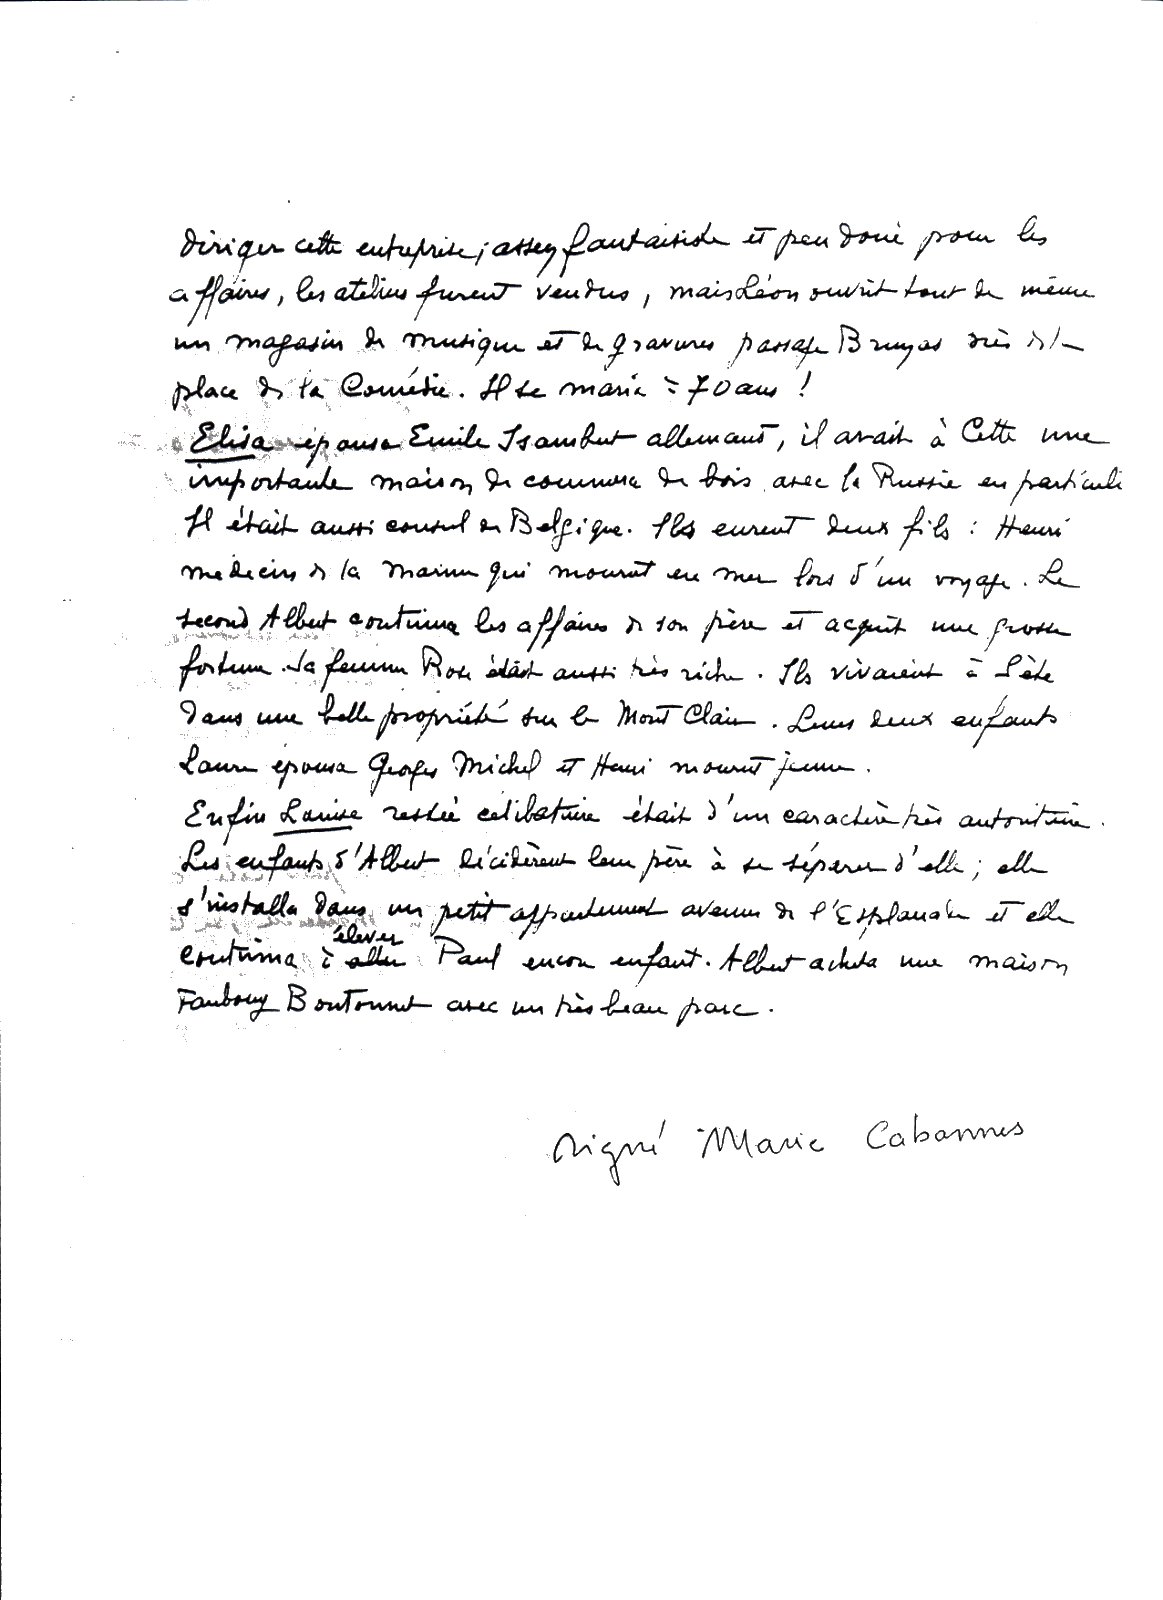 diriger cette entreprise; assez fantaisiste et peu doué pour les
affaires, les ateliers furent vendus, mais Léon ouvrit tout de même
un magasin de musique et de gravures passage Bruyas près de la
place de la Comédie. Il se maria à 70 ans !
Elisa épousa Emile Isambert allemand, il avait à Cette une
importante maison de commerce de bois avec la Russie en particulie
Il était aussi consul de Belgique. Ils eurent deux fils : Henri
médecin de la marine qui mourut en mer lors d'un voyage. Le
second Albert continua les affaires de son père et acquit une grosse
fortune. Sa femme Rose était aussi très riche. Ils vivaient à Sète
dans une belle propriété sur le Mont Clair. Leurs deux enfants
Laure épousa Georges Michel et Henri mourut jeune.
Enfin Louise restée célibataire était d'un caractère très autoritaire.
Les enfants d'Albert décidèrent leur père à se séparer d'elle ; elle
s'installa dans un petit appartement avenue de l'Esplanade et elle
continua à élever aller Paul encore enfant. Albert acheta une maison
Faubourg Boutonnet avec un très beau parc.
Signé Marie Cabannes